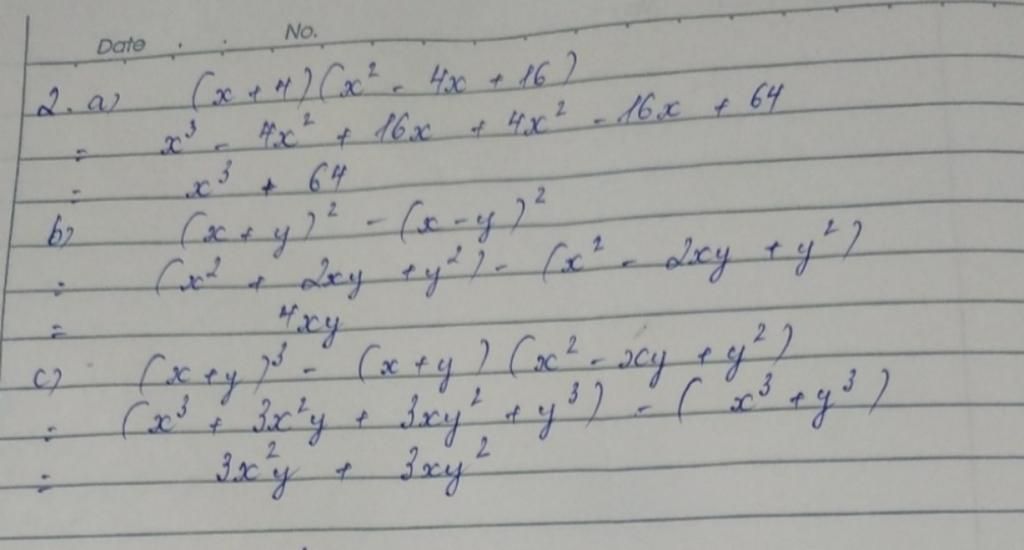 Date . . No.
2. a) (x + 4)(x² - 4x + 16)
= x³ - 4x² + 16x + 4x² - 16x + 64
= x³ + 64
b) (x + y)² - (x - y)²
= (x² + 2xy + y²) - (x² - 2xy + y²)
= 4xy
c) (x + y)³ - (x + y)(x² - xy + y²)
= (x³ + 3x²y + 3xy² + y³) - (x³ + y³)
= 3x²y + 3xy²